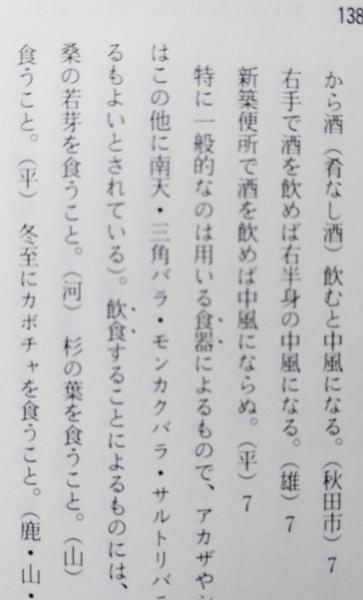 138
から酒(肴なし酒)飲むと中風になる。(秋田市)7
右手で酒を飲めば右半身の中風になる。(雄)7
新築便所で酒を飲めば中風にならぬ。(平)7
特に一般的なのは用いる食器によるもので、アカザや
はこの他に南天・三角バラ・モンカクバラ・サルトリバラ
るもよいとされている)。飲食することによるものには、
桑の若芽を食うこと。(河) 杉の葉を食うこと。(山)
食うこと。(平) 冬至にカボチャを食うこと。(鹿・山・